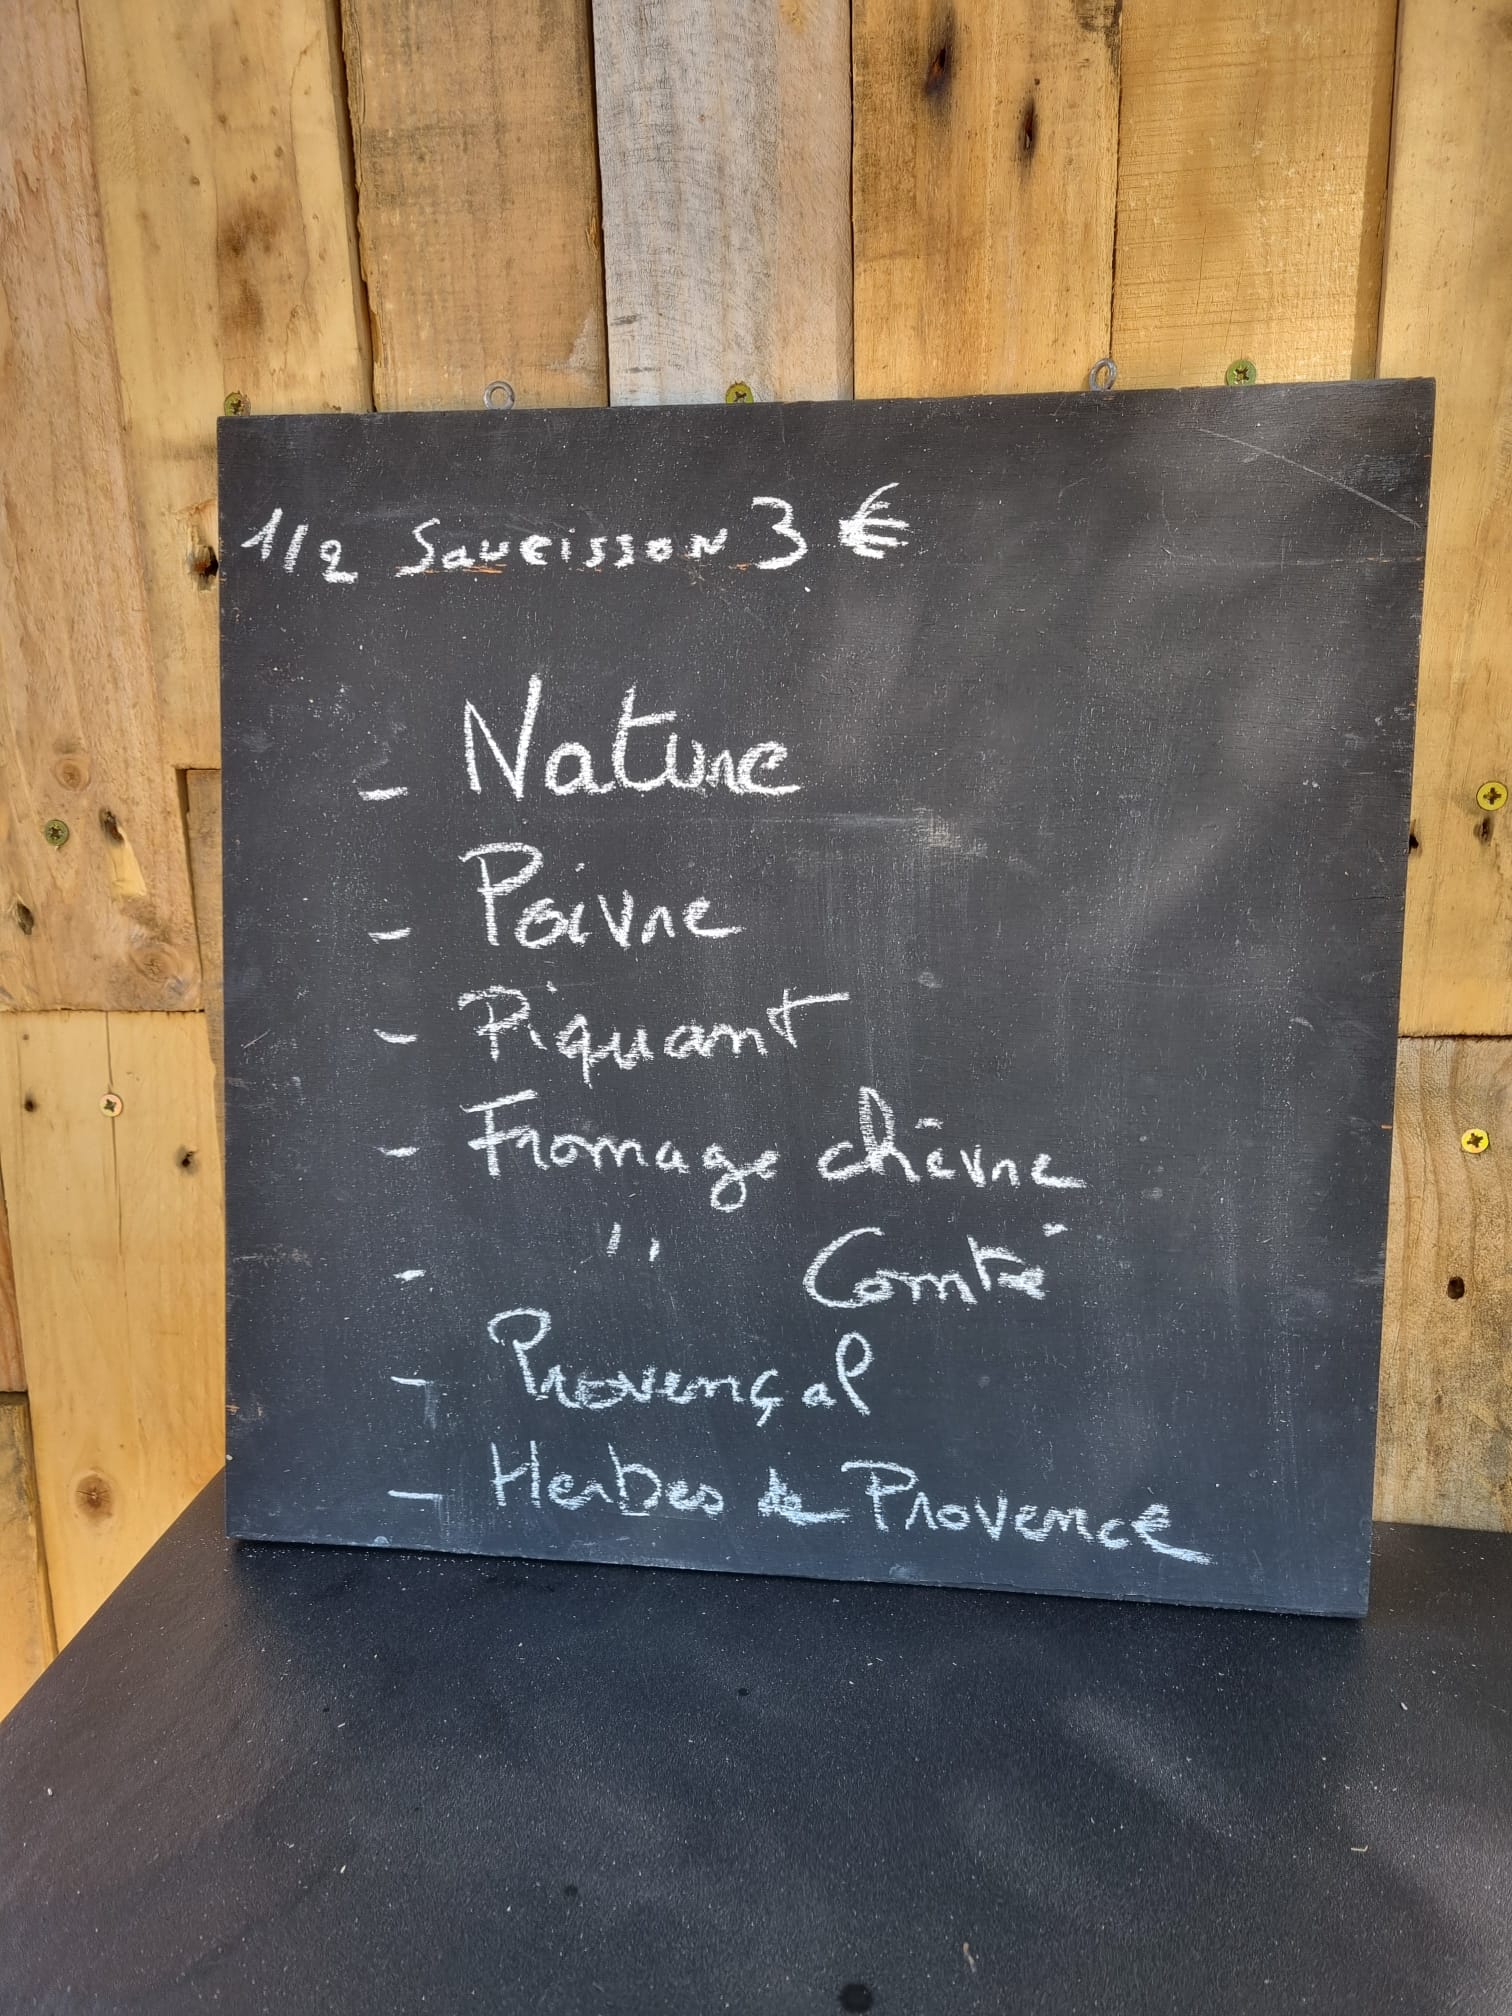 1/2 Saucisson 3 €
- Nature
- Poivre
- Piquant
- Fromage chèvre
- " Comté
- Provençal
- Herbes de Provence